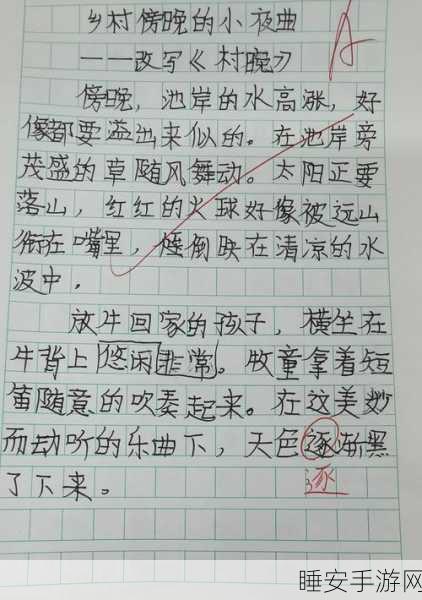 乡村傍晚的小夜曲
——改写《村晚》
A
傍晚，池岸的水高涨，好
像都要溢出来似的。在池岸旁
茂盛的草随风舞动。太阳正要
落山，红红的火球好像被远山
衔在嘴里，倒映在清凉的水
波中，
放牛回家的孩子，横坐在
牛背上悠闲非常。牧童拿着短
笛随意的吹奏起来。在这美妙
而动听的乐曲下，天色逐渐黑
了下来。
逐
睡安手游网